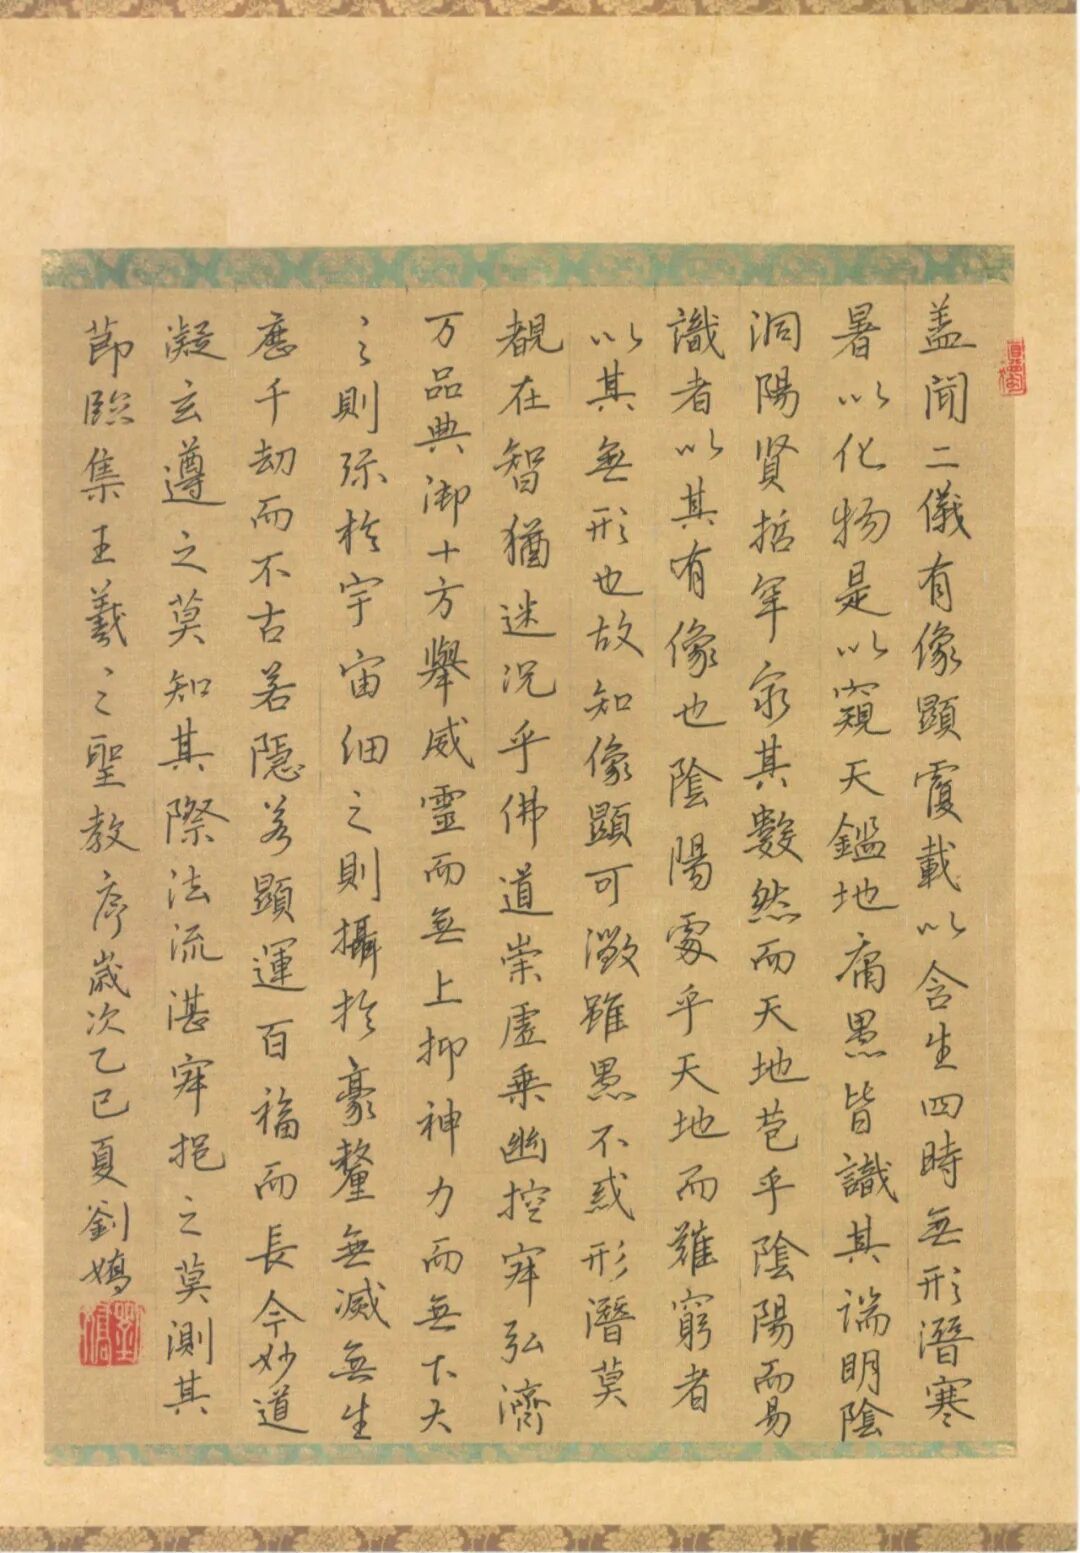 盖聞二儀有像顯覆載以含生四時無形潛寒
暑以化物是以窺天鑑地庸愚皆識其端明陰
洞陽賢哲罕窮其數然而天地苞乎陰陽而易
識者以其有像也陰陽處乎天地而難窮者
以其無形也故知像顯可徵雖愚不惑形潛莫
覩在智猶迷況乎佛道崇虛乘幽控寂弘濟
万品典御十方舉威靈而無上抑神力而無下大
之則弥於宇宙細之則攝於豪釐無滅無生
歷千劫而不古若隱若顯運百福而長今妙道
凝玄遵之莫知其際法流湛寂挹之莫測其
節臨集王羲之聖教序歲次乙巳夏劉嬌